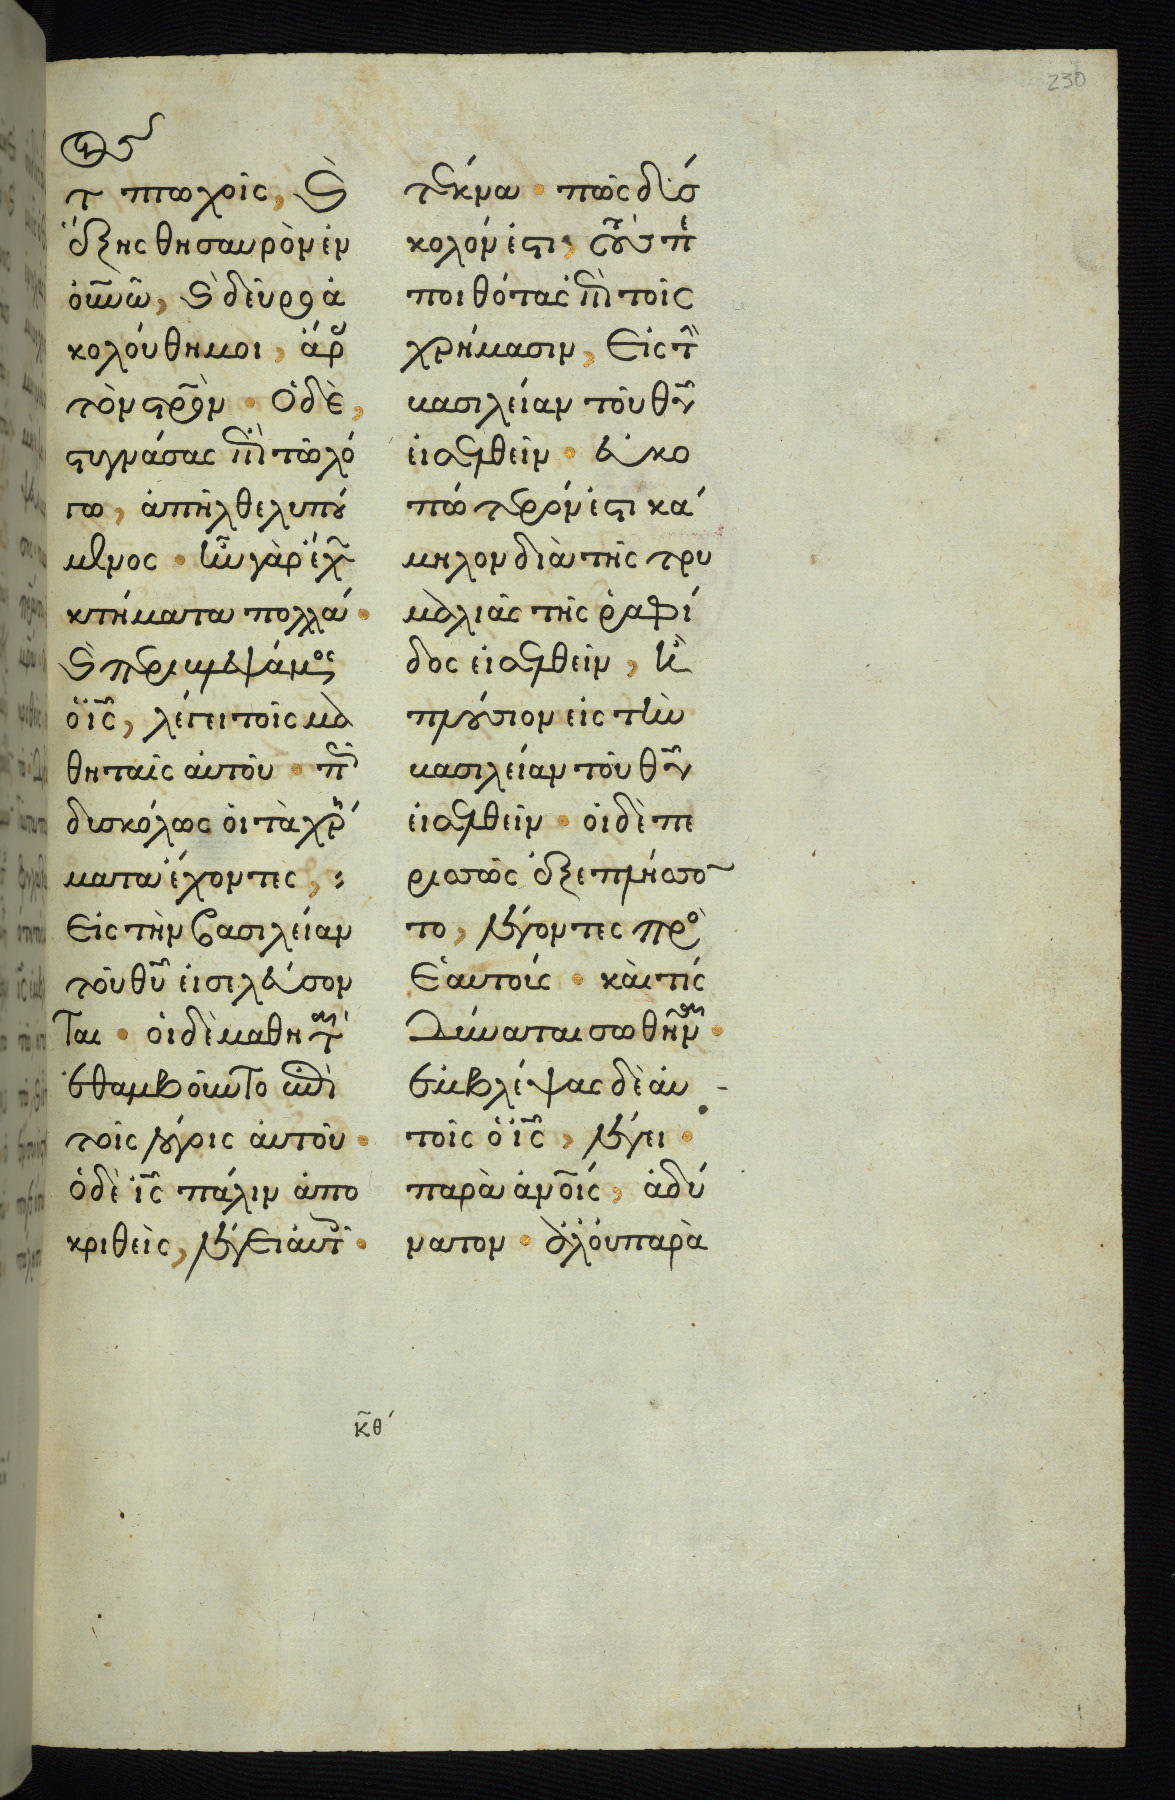 230
τ πτωχοῖς, ϗ
ἕξης θησαυρὸν ἐν
οὐνῶ, ϗ δεῦρο ἀ
κολούθη μοι, ἄρ
τὸν στρον· Ὁ δὲ,
στυγνάσας ἐπὶ τῶ λό
γω, ἀπῆλθε λυπού
μενος· ἦν γὰρ ἔχ
κτήματα πολλά·
ϗ περιβλεψάμενος
ὁ ις, λέγει τοῖς μα
θηταῖς αὐτοῦ· π
δυσκόλως οἱ τὰ χρ
ματα ἔχοντες,
Εἰς τὴν βασιλείαν
τοῦ θυ εἰσελεύσον
ται· οἱ δὲ μαθητ
ἐθαμβοῦντο ἐπὶ
τοῖς λόγοις αὐτοῦ·
ὁ δὲ ις πάλιν ἀπο
κριθεὶς, λέγει αὐτ·
τέκνα· πῶς δύσ
κολόν ἐστι, τοὺς π
ποιθότας ἐπὶ τοῖς
χρήμασιν, Εἰς τ
βασιλείαν τοῦ θυ
εἰσελθεῖν· εὐκο
πώτερόν ἐστι κά
μηλον διὰ τῆς τρυ
μαλιᾶς τῆς ῥαφί
δος εἰσελθεῖν, ἢ
πλούσιον εἰς τὴν
βασιλείαν τοῦ θυ
εἰσελθεῖν· οἱ δὲ πε
ρισσῶς ἐξεπλήσσο
το, λέγοντες πρὸ
Ἑαυτούς· καὶ τίς
Δύναται σωθῆναι·
ἐμβλέψας δὲ αὐ
τοῖς ὁ ις, λέγει·
παρὰ ἀνοις, ἀδύ
νατον· ἀλλ' οὐ παρὰ
κθ